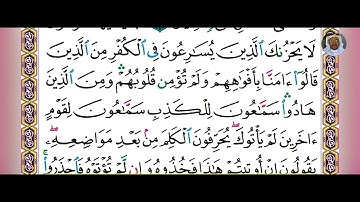 لَا يَحْزُنكَ ٱلَّذِينَ يُسَٰرِعُونَ فِى ٱلْكُفْرِ مِنَ ٱلَّذِينَ
قَالُوٓا۟ ءَامَنَّا بِأَفْوَٰهِهِمْ وَلَمْ تُؤْمِن قُلُوبُهُمْ ۛ وَمِنَ ٱلَّذِينَ
هَادُوا۟ ۛ سَمَّٰعُونَ لِلْكَذِبِ سَمَّٰعُونَ لِقَوْمٍ
ءَاخَرِينَ لَمْ يَأْتُوكَ ۖ يُحَرِّفُونَ ٱلْكَلِمَ مِنۢ بَعْدِ مَوَاضِعِهِۦ ۖ
يَقُولُونَ إِنْ أُوتِيتُمْ هَٰذَا فَخُذُوهُ وَإِن لَّمْ تُؤْتَوْهُ فَٱحْذَرُوا۟ ۚ